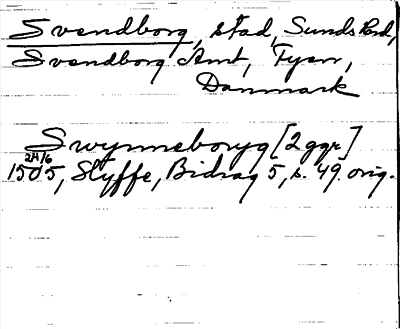 Svendborg, stad, Sunds Hrd,
Svendborg Amt, Fyen,
Danmark
Swynneboryg [2 ggr]
24/6
1505, Styffe, Bidrag 5, s. 49. orig.